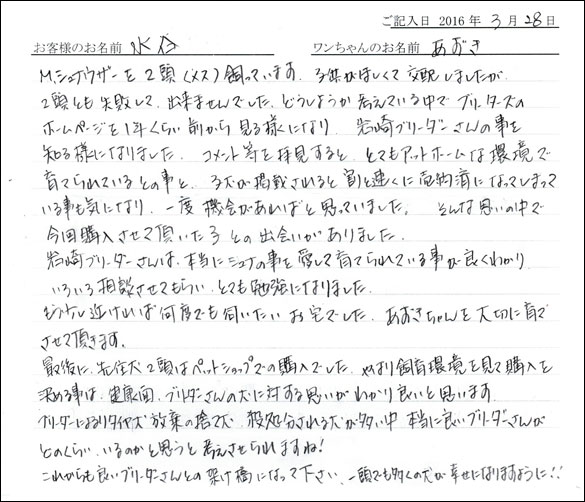 ご記入日 2016 年 3 月 28 日
お客様のお名前 水谷 ワンちゃんのお名前 あずき
M.シュナウザーを2頭(メス)飼っています。子供がほしくて交配しましたが
2頭とも失敗して、出来ませんでした。どうしようか考えている中でブリーダーズの
ホームページを1年くらい前から見る様になり、岩崎ブリーダーさんの事を
知る様になりました。コメント等を拝見すると、とてもアットホームな環境で
育てられているとの事と、子犬が掲載されると割と速くに商約済になってしまって
いる事も気になり、一度機会があればと思っていました。そんな思いの中で
今回購入させて頂いた子との出会いがありました。
岩崎ブリーダーさんは、本当にシュナの事を愛して育てられている事が良くわかり
いろいろ相談させてもらい、とても勉強になりました。
もう少し近ければ何度でも伺いたいお宅でした。あずきちゃんを大切に育て
させて頂きます。
最後に、先住犬2頭はペットショップでの購入でした。やはり飼育環境を見て購入を
決める事は、健康面、ブリーダーさんの犬に対する思いがわかり良いと思います。
ブリーダーによるリタイヤ犬放棄の捨て犬、殺処分される犬が多い中 本当に良いブリーダーさんが
どのくらい、いるのかと思うと考えさせられますね!
これからも良いブリーダーさんとの架け橋になって下さい、一頭でも多くの犬が幸せになりますように!!